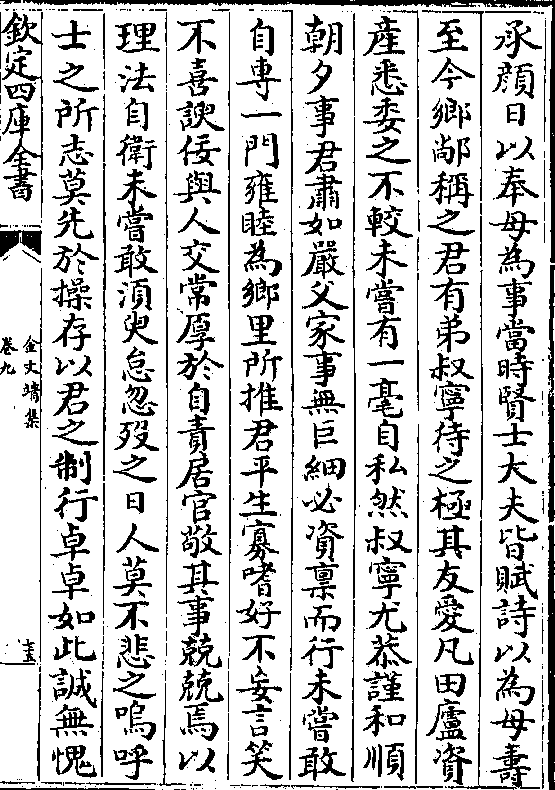 承顔日以奉母為事當時賢士大夫皆賦詩以為母壽
至今鄉鄰稱之君有弟叔寧待之極其友愛凡田廬資
産悉委之不較未嘗有一毫自私然叔寧尤恭謹和順
朝夕事君肅如嚴父家事無巨細必資稟而行未嘗敢
自専一門雍睦為鄉里所推君平生寡嗜好不妄言笑
不喜諛佞與人交常厚於自責居官敬其事兢兢焉以
理法自衛未嘗敢須臾怠忽歿之日人莫不悲之嗚呼
士之所志莫先於操存以君之制行卓卓如此誠無愧
欽定四庫全書
金文靖集
卷九
十五